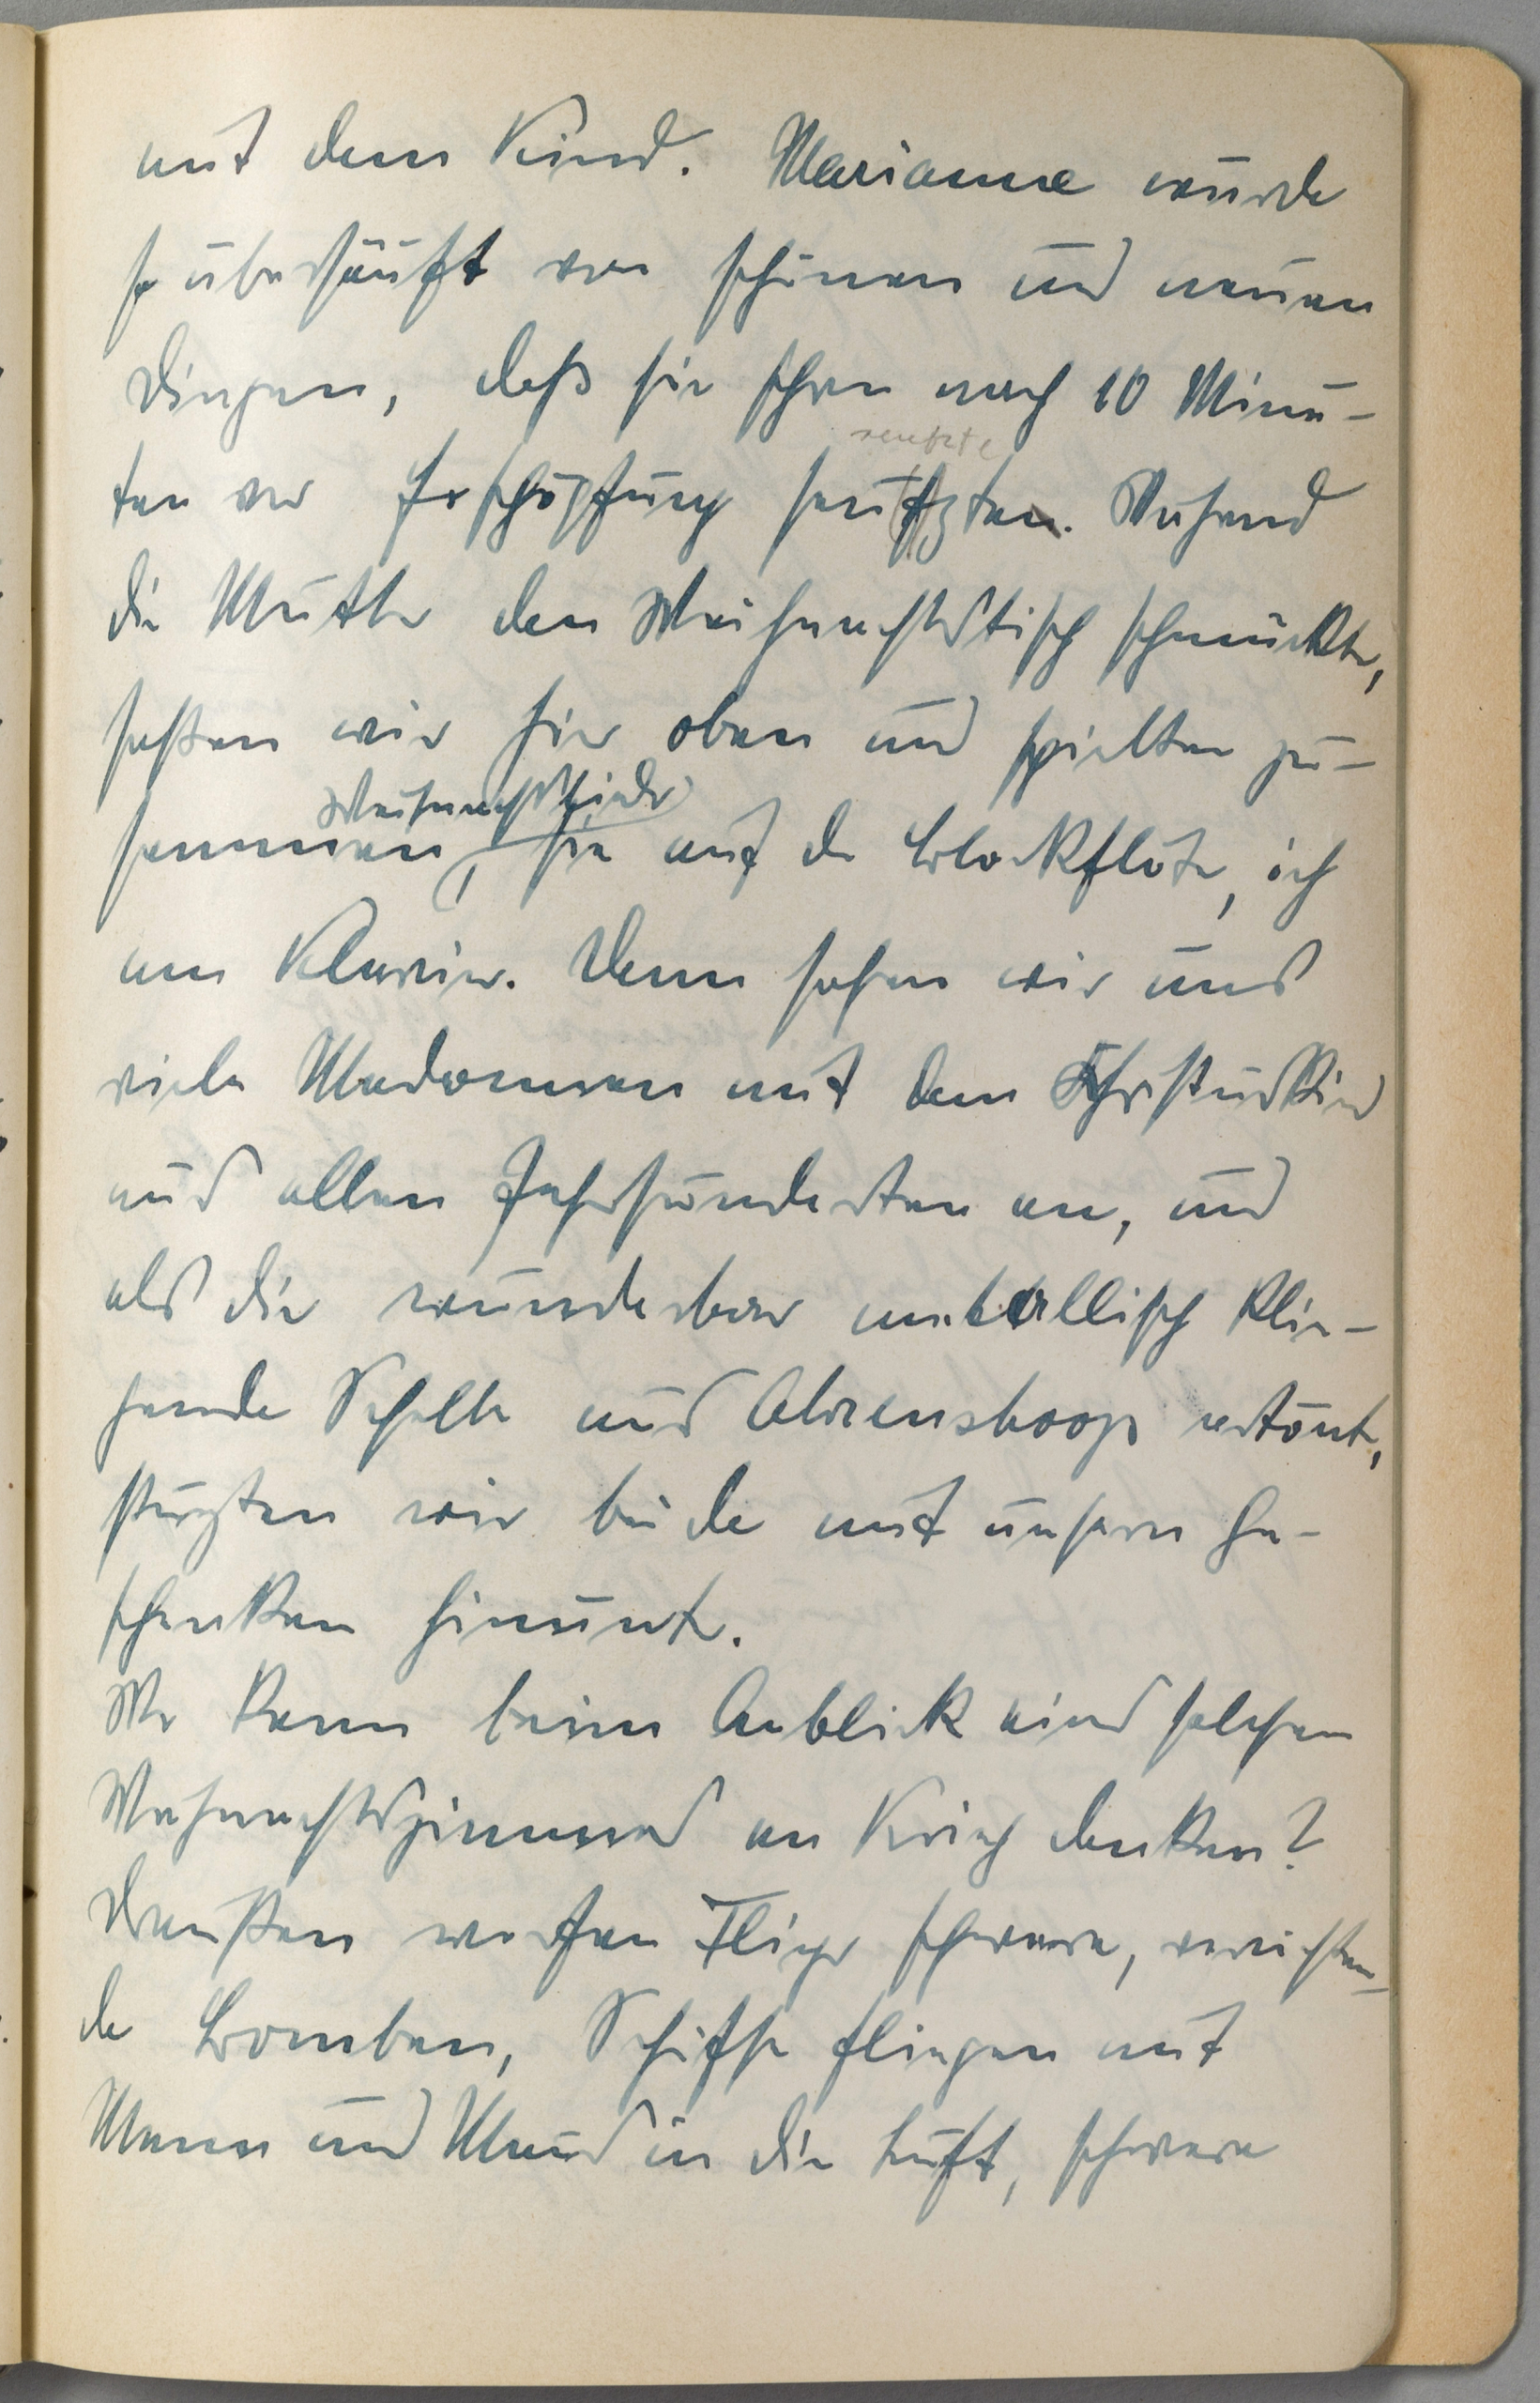 mit dem Kind. Marianne wurde
so überhäuft von schönen und neuen
Dingen, daß sie schon nach 10 Minu-
seufzte
ten vor Erschöpfung seufzten. Während
die Mutter den Weihnachtstisch schmückte,
saßen wir hier oben und spielten zu-
Weihnachtslieder
sammen, sie auf der Blockflöte, ich
am Klavier. Dann sahen wir uns
viele Madonnen mit dem Christuskind
aus allen Jahrhunderten an, und
als die wunderbar metallisch klin-
gende Schelle aus Ahrenshoop ertönte,
stürzten wir beide mit unsern Ge-
schenken hinunter.
Wer kann beim Anblick eines solchen
Weihnachtszimmers an Krieg denken?
Draußen werfen Flieger schwere, vernichten-
de Bomben, Schiffe fliegen mit
Mann und Maus in die Luft, schwere